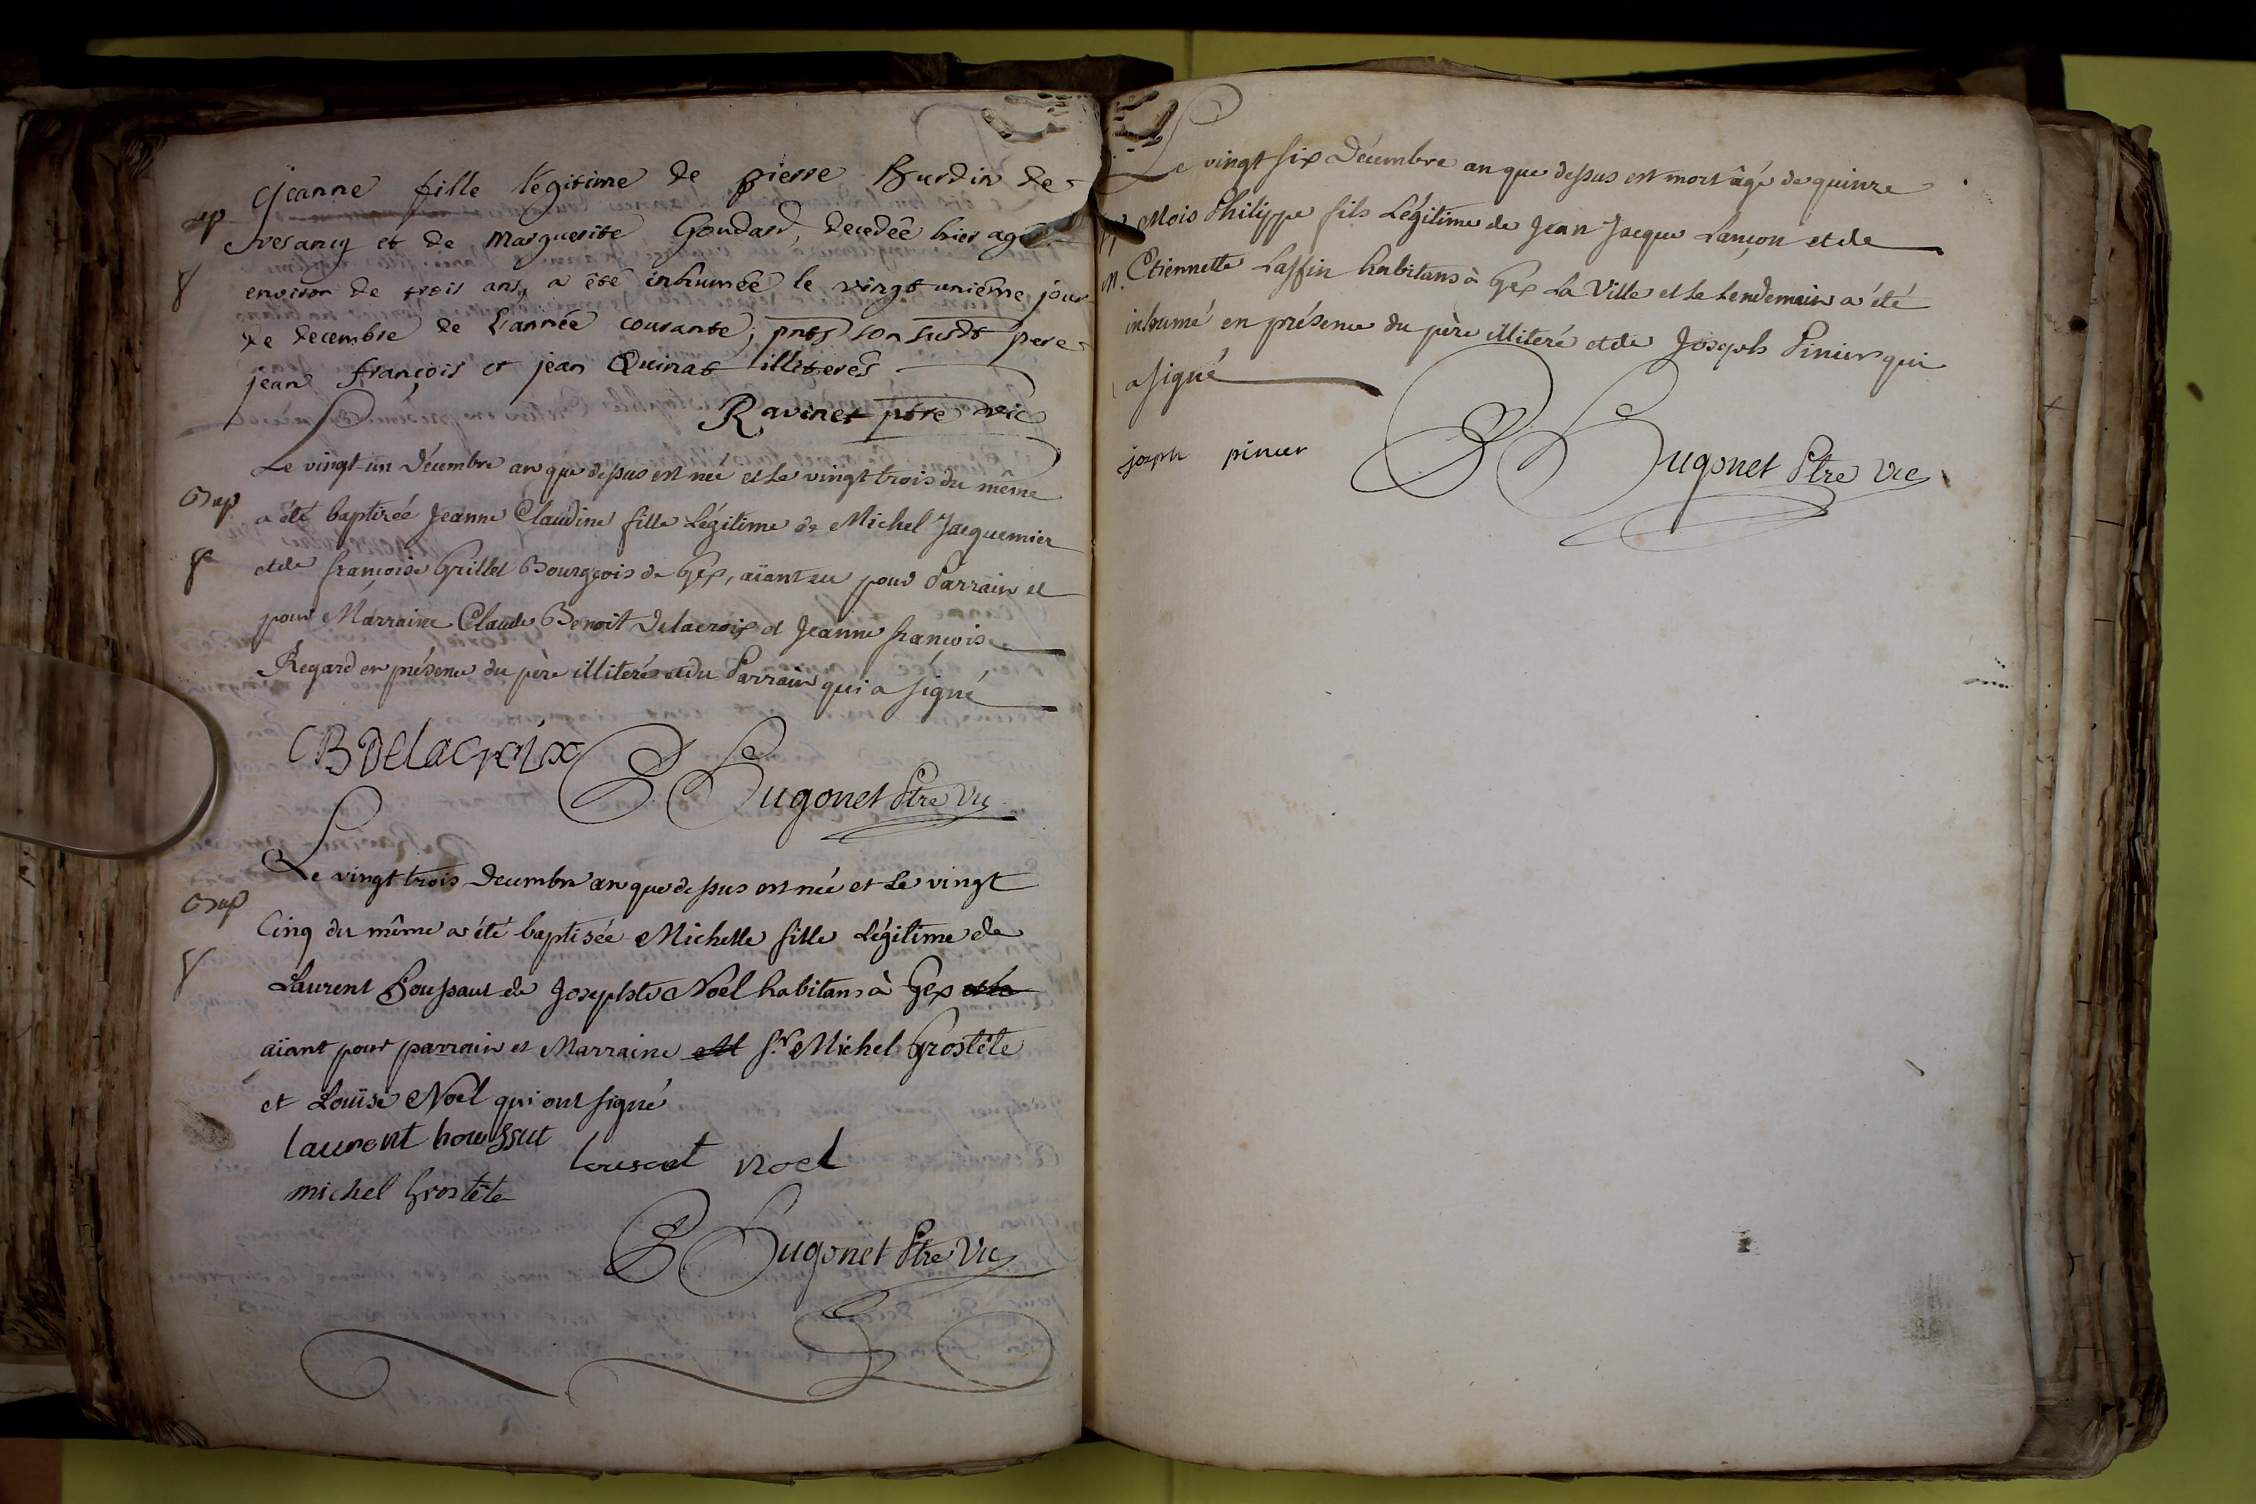 Jeanne fille légitime de pierre Burdin de
sep
vesancy et de Marguerite Goudard, decedée hier agée
environ de trois ans, a été inhumée le vingt uniême jour
de decembre de l'année courante; pnts son susdt pere
jean françois et jean Quinat illiterés
Ravinet ptre vic
Le vingt-un Décembre an que dessus est née et Le vingt trois du même
Bap
a été baptizée Jeanne Claudine fille Légitime de Michel Jacquemier
et de françoise Grillet Bourgeois de Gex, aïant eu pour Parrain et
pour Marraine Claude Benoit Delacroix et Jeanne françoise
Regard en présence du père illiteré et du Parrain qui a signé
CB Delacroix
Hugonet Ptre Vic
Le vingt trois Decembre an que dessus est née et Le vingt
Bap
Cinq du même a été baptisée Michelle fille Légitime de
Laurent Boussaut de Josephte Noël habitans à Gex
aïant pour parrain et Marraine Sr. Michel Grostête
et Louïse Noël qui ont signé
laurent boussut
louscet noel
michel Grostête
Hugonet Ptre Vic
Le vingt six Décembre an que dessus est mort âgé de quinze
Mois Philippe fils Légitime de Jean Jacque Lançon et de
Etiennette Laffin habitans à Gex La Ville et Le Lendemain a été
inhumé en présence du père illiteré et de Joseph Pinier qui
a signé
joseph pinier
Hugonet Ptre Vic